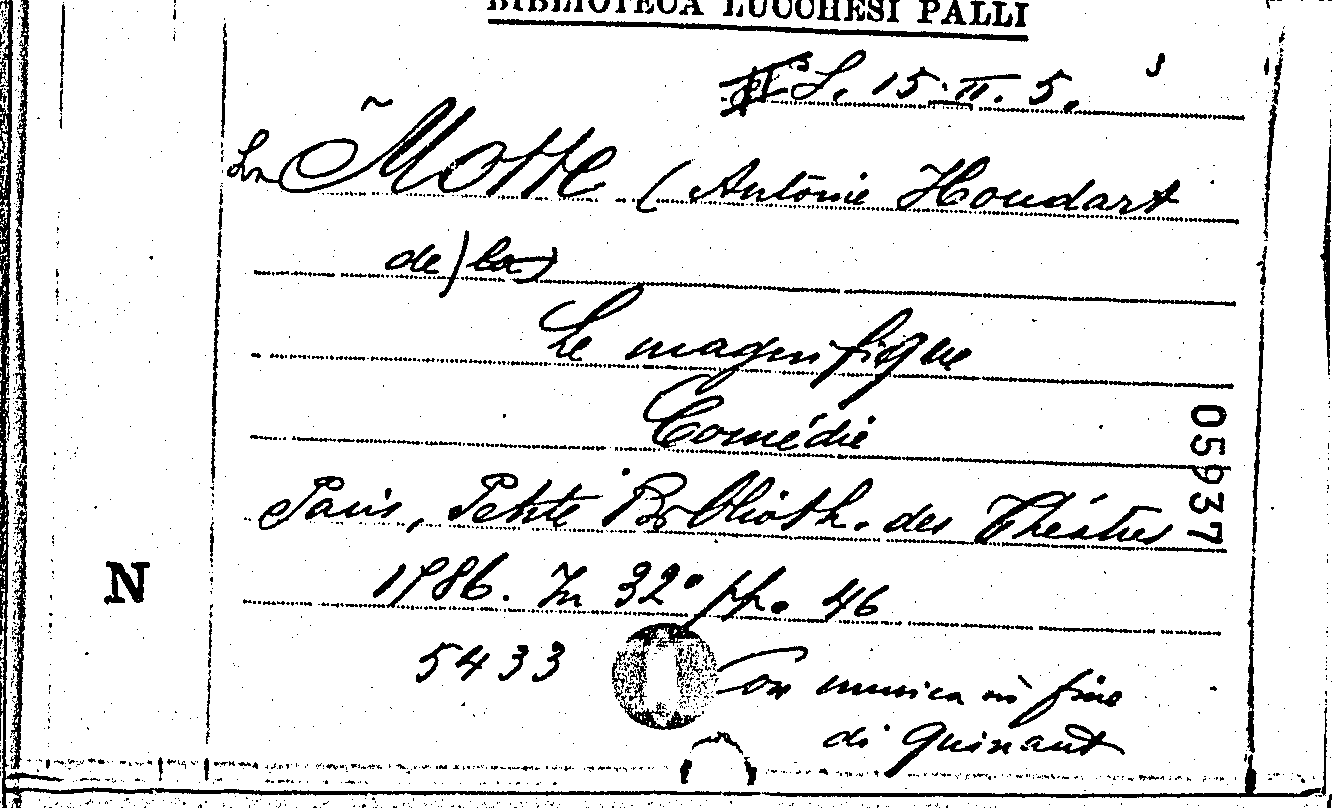 BIBLIOTECA LUCCHESI PALLI
L. 15. II. 5.
La Motte (Antoine Houdart
de) la)
Le magnifique
Comédie
Paris, Petite Biblioth. des Théâtres
1786. In 32° pp. 46
5433 Con musica in fine
di Quinaut
05937
N